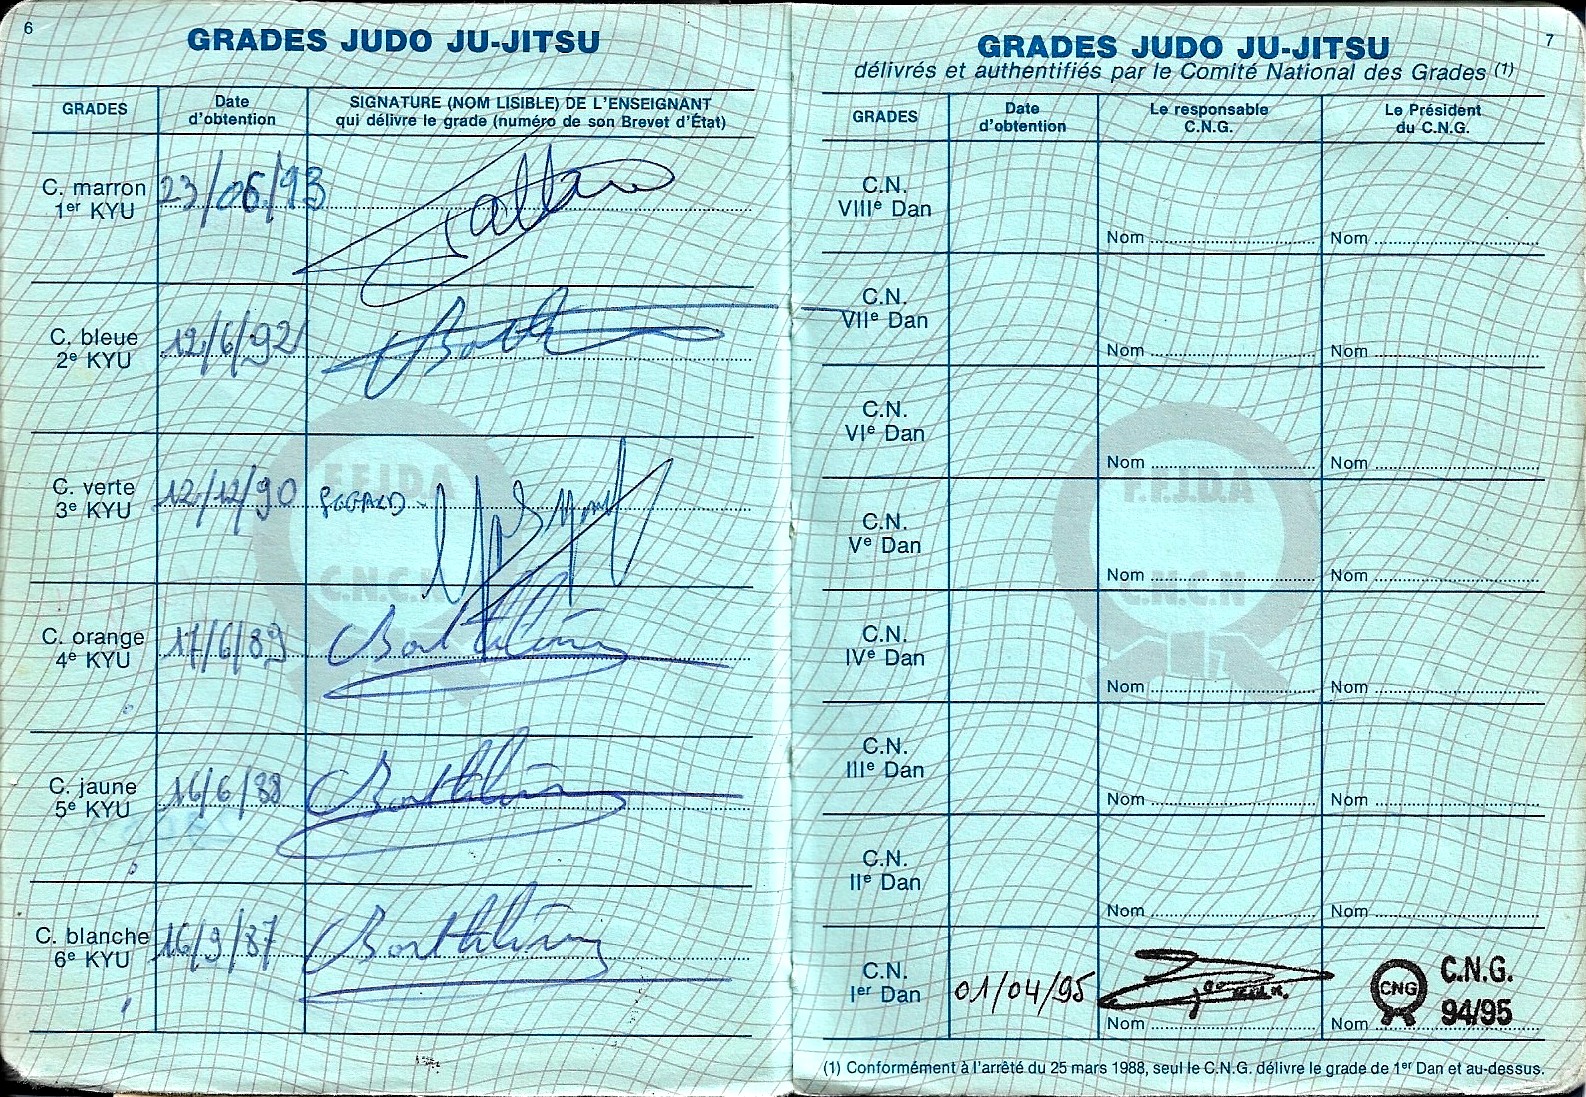 6
GRADES JUDO JU-JITSU
GRADES
Date
d'obtention
SIGNATURE (NOM LISIBLE) DE L'ENSEIGNANT
qui délivre le grade (numéro de son Brevet d'État)
C. marron
1er KYU
23/06/93
C. bleue
2e KYU
12/6/92
F.F.J.D.A
C.N.C.N
C. verte
3e KYU
12/12/90
C. orange
4e KYU
17/6/89
C. jaune
5e KYU
16/6/88
C. blanche
6e KYU
16/9/87
7
GRADES JUDO JU-JITSU
délivrés et authentifiés par le Comité National des Grades (1)
GRADES
Date
d'obtention
Le responsable
C.N.G.
Le Président
du C.N.G.
C.N.
VIIIe Dan
Nom
Nom
C.N.
VIIe Dan
Nom
Nom
C.N.
VIe Dan
Nom
Nom
F.F.J.D.A
C.N.C.N
C.N.
Ve Dan
Nom
Nom
C.N.
IVe Dan
Nom
Nom
C.N.
IIIe Dan
Nom
Nom
C.N.
IIe Dan
Nom
Nom
C.N.
Ier Dan
01/04/95
Nom
CNG
C.N.G.
94/95
Nom
(1) Conformément à l'arrêté du 25 mars 1988, seul le C.N.G. délivre le grade de 1er Dan et au-dessus.